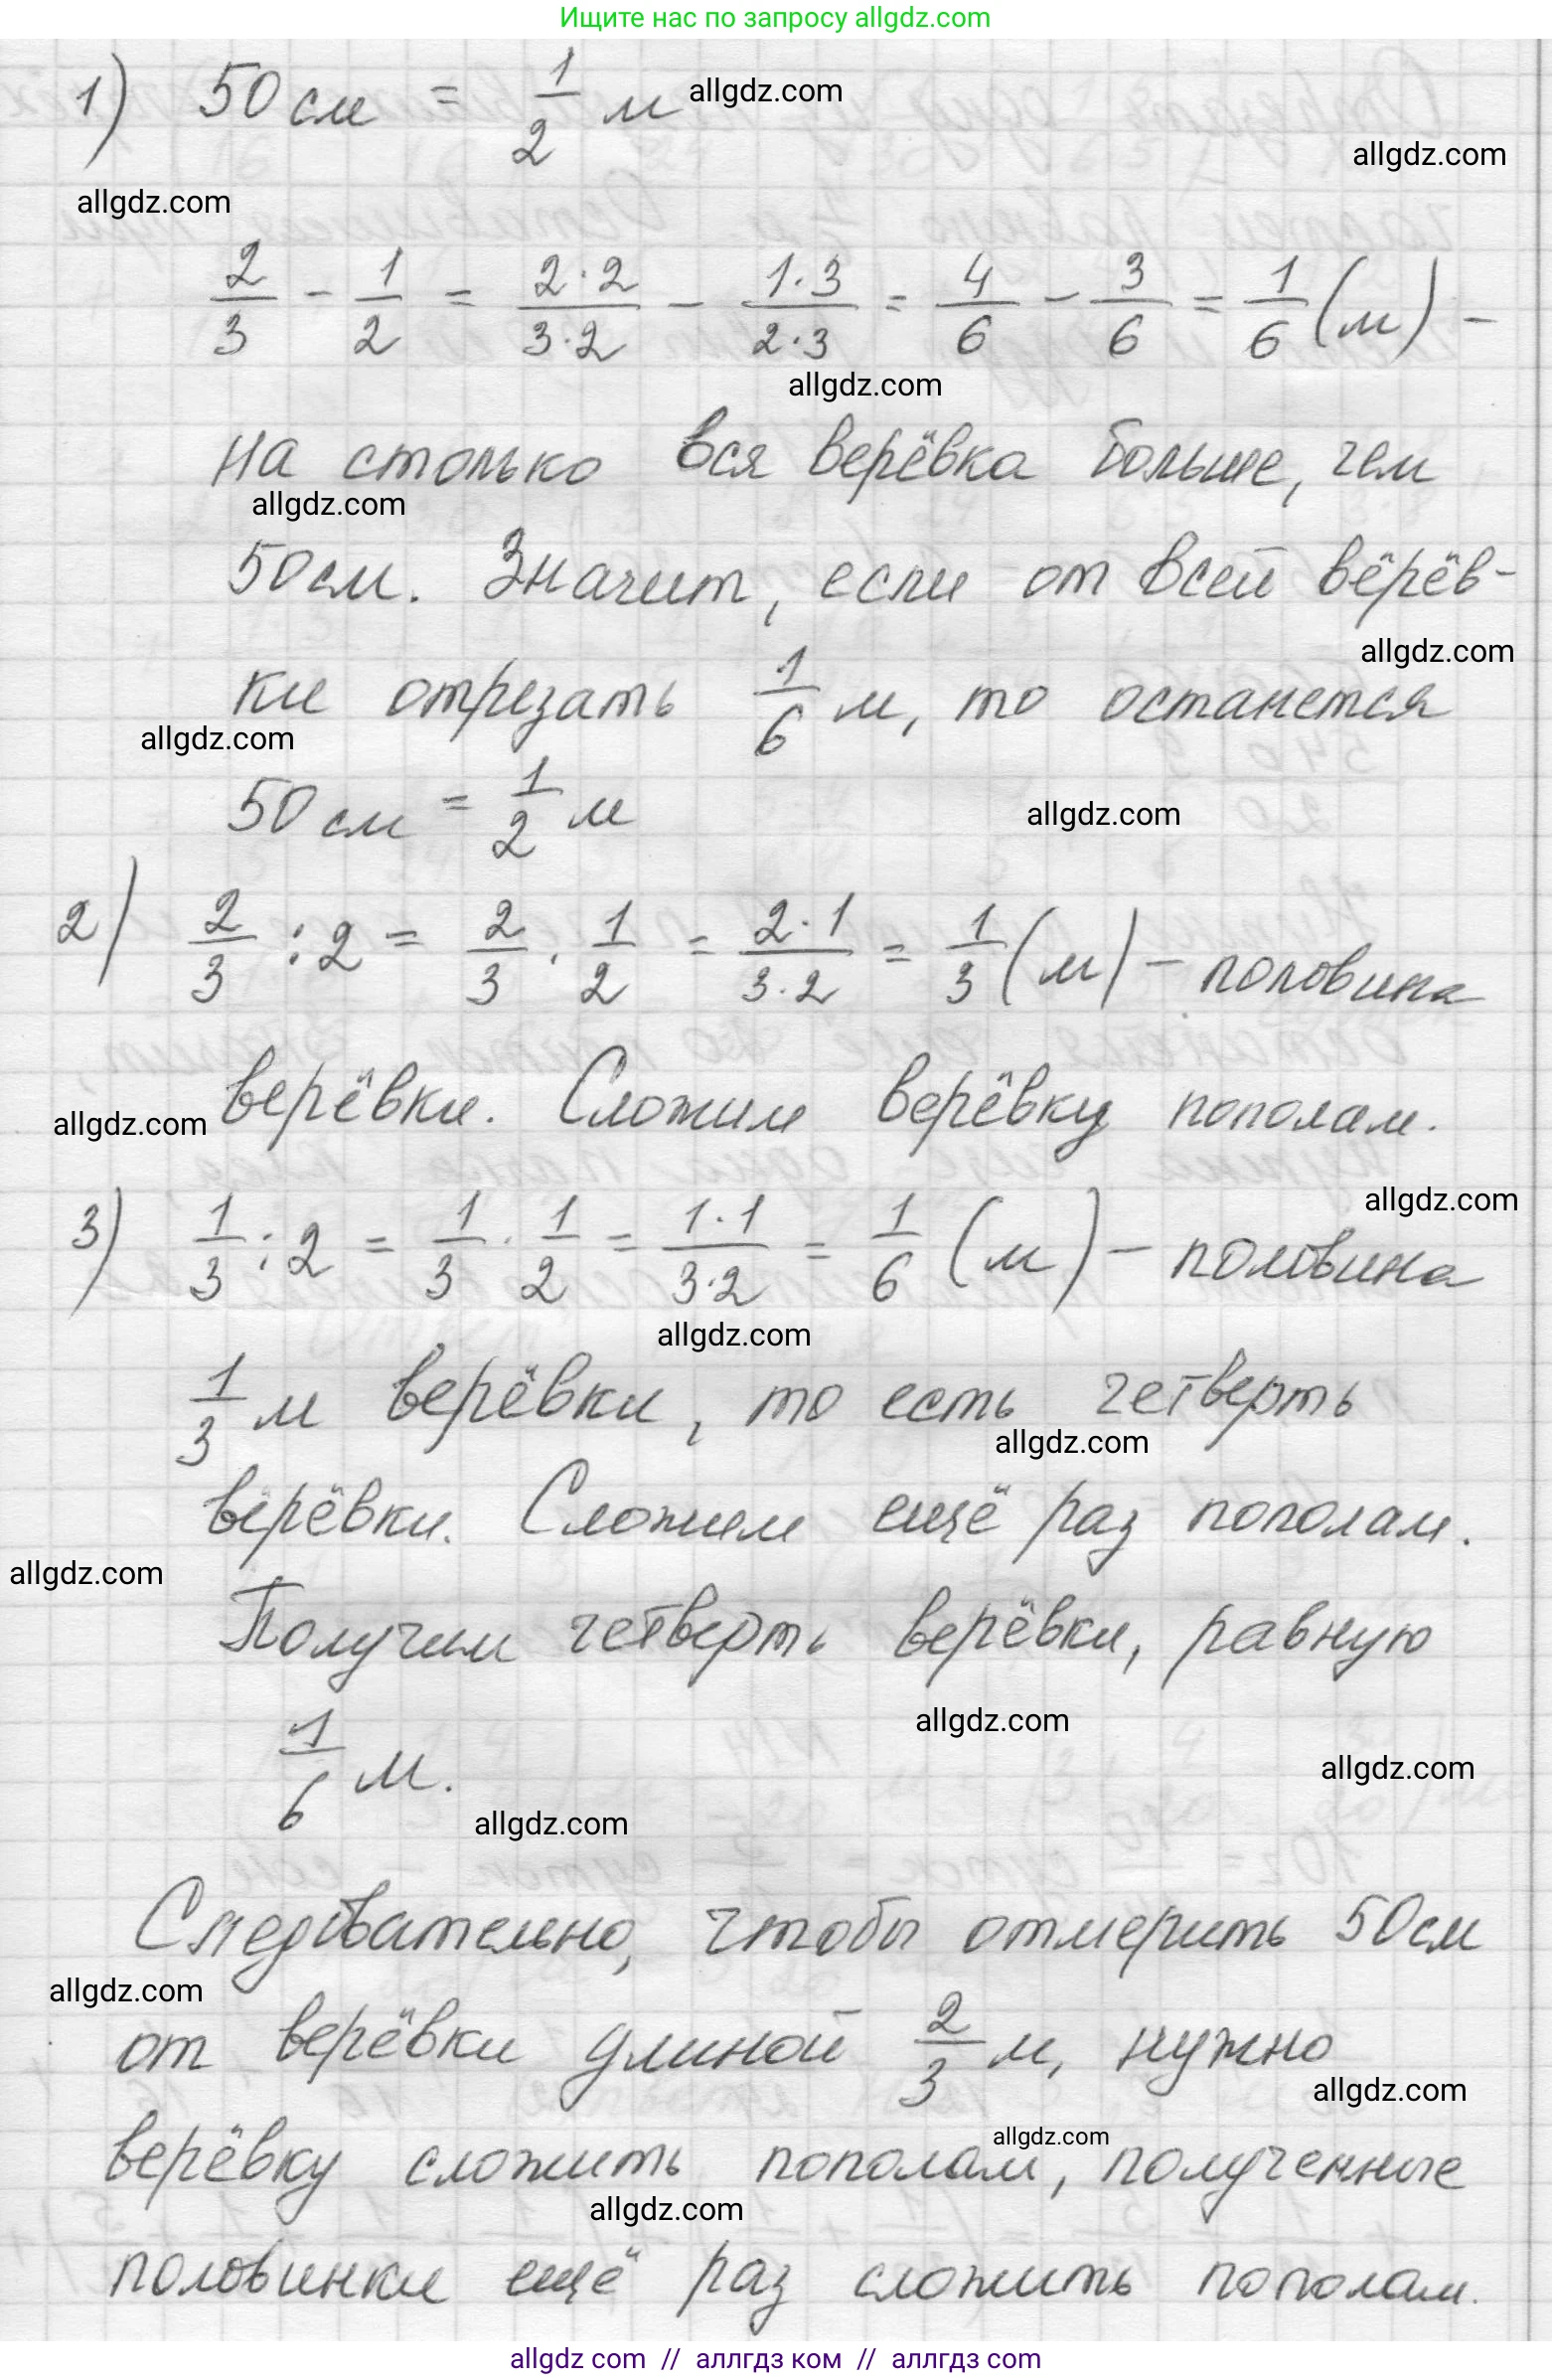 Ищите нас по запросу allgdz.com
1) 50 см = 1/2 м allgdz.com
allgdz.com
allgdz.com
2/3 - 1/2 = 2·2/3·2 - 1·3/2·3 = 4/6 - 3/6 = 1/6 (м) -
allgdz.com
на столько вся верёвка больше, чем
allgdz.com
50 см. Значит, если от всей вёрёв-
allgdz.com
ки отрезать 1/6 м, то останется
allgdz.com
50 см = 1/2 м
allgdz.com
2) 2/3 : 2 = 2/3 · 1/2 = 2·1/3·2 = 1/3 (м) - половина
верёвки. Сложим верёвку пополам.
allgdz.com
allgdz.com
3) 1/3 : 2 = 1/3 · 1/2 = 1·1/3·2 = 1/6 (м) - половина
allgdz.com
1/3 м верёвки, то есть четверть
allgdz.com
верёвки. Сложим ещё раз пополам.
allgdz.com
Получим четверть верёвки, равную
allgdz.com
1/6 м.
allgdz.com
allgdz.com
Следовательно, чтобы отмерить 50 см
allgdz.com
от верёвки длиной 2/3 м, нужно
allgdz.com
allgdz.com
верёвку сложить пополам, полученные
allgdz.com
половинки ещё раз сложить пополам.
allgdz com // аллгдз ком // аллгдз com